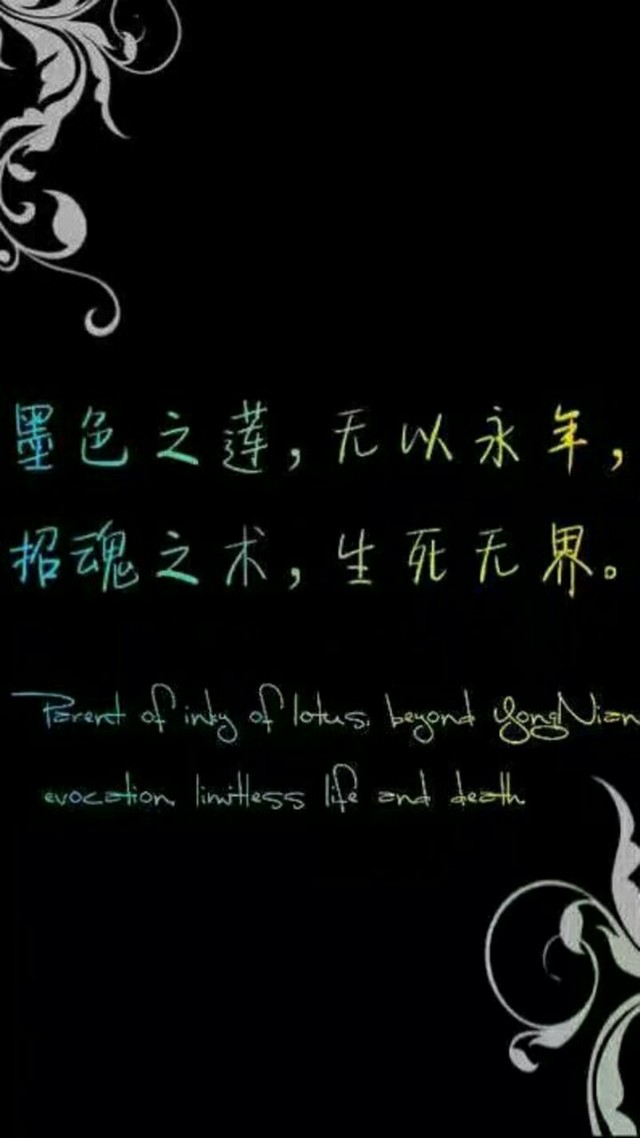 墨色之莲，无以永年，
招魂之术，生死无界。
Parent of inky of lotus, beyond YongNian
evocation limitless life and death